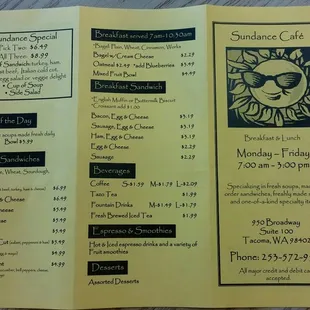 undance Special
Pick Two $6.49
All Three $8.99
f Sandwich: turkey, ham,
st beef, Italian cold cut,
egg salad or veggie delight
• Cup of Soup
• Side Salad
of the Day
soups made fresh daily
Bowl $3.99
Sandwiches
Wheat, Sourdough,
& Cheese
Cheese
Breakfast served 7am-10:30am
*Bagel: Plain, Wheat, Cinnamon, Works
Bagel w/Cream Cheese $2.29
Oatmeal $2.49 *add Blueberries $3.29
Mixed Fruit Bowl $4.99
Breakfast Sandwich
*English Muffin or Buttermilk Biscuit
*Croissant add $1.00
Bacon, Egg & Cheese $3.19
Sausage, Egg & Cheese $3.19
Ham, Egg & Cheese $3.19
Egg & Cheese $2.29
Sausage $2.29
Beverages
Coffee S-$1.59 M-$1.79 L-$2.09
Tazo Tea $1.99
Fountain Drinks M-$1.79 L-$1.99
Fresh Brewed Iced Tea $1.99
Espresso & Smoothies
Hot & Iced espresso drinks and a variety of
Fruit smoothies
Desserts
Assorted Desserts
Sundance Café
Breakfast & Lunch
Monday – Friday
7:00 am - 3:00 pm
Specializing in fresh soups, made
order sandwiches, freshly made s
and one-of-a-kind specialty it
950 Broadway
Suite 100
Tacoma, WA 9840
Phone: 253-572-9
All major credit and debit ca
accepted.